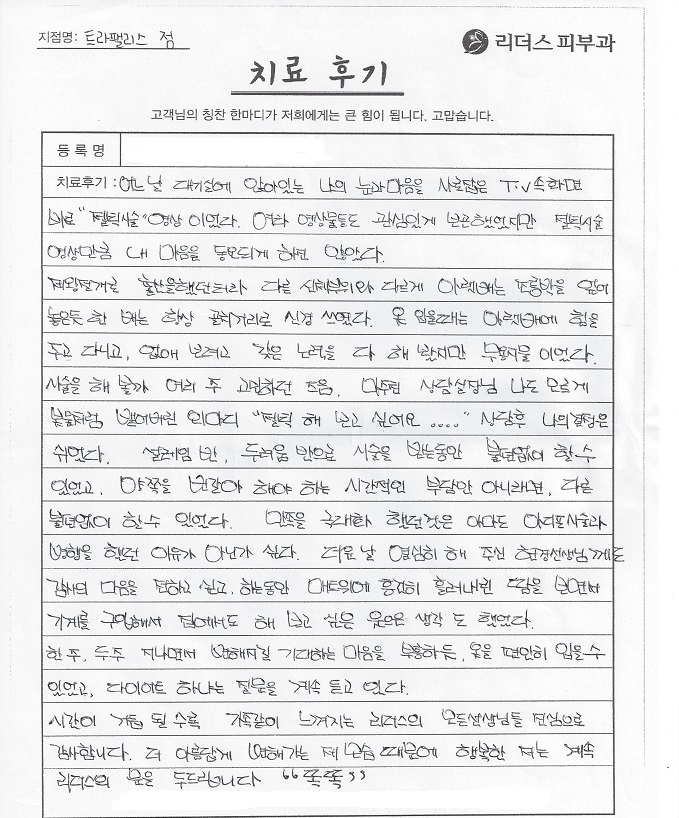 지점명: 트라팰리스 점
리더스 피부과
치료 후기
고객님의 칭찬 한마디가 저희에게는 큰 힘이 됩니다. 고맙습니다.
등 록 명
치료후기 : 어느날 대기실에 앉아있는 나의 눈과마음을 사로잡은 T.V속화면
바로 "젤틱시술"영상 이었다. 여러 영상물들도 관심있게 보곤했었지만 젤틱시술
영상만큼 내 마음을 동요되게 하진 않았다.
제왕절개로 출산을했던터라 다른 신체부위와 다르게 아랫배는 조롱박을 엎어
놓은듯 한 배는 항상 골칫거리로 신경 쓰였다. 옷 입을때는 아랫배에 힘을
주고 다니고, 없애 보려고 갖은 노력을 다 해 봤지만 무용지물 이었다.
시술을 해 볼까 여러 주 고민하던 즈음, 마주친 상담실장님 나도 모르게
봇물처럼 뱉어버린 한마디 "젤틱 해 보고 싶어요 ...." 상담후 나의결정은
쉬웠다. 설레임 반, 두려움 반으로 시술을 받는동안 불편없이 할수
있었고, 양쪽을 번갈아 해야 하는 시간적인 부담만 아니라면, 다른
불편없이 할수 있었다. 만족을 극대화 했던것은 아마도 아디포시술과
병행을 했던 이유가 아닌가 싶다. 더운 날 열심히 해 주신 현경선생님께도
감사의 마음을 전하고 싶고, 하는동안 매트위에 흥건히 흘러내린 땀을 보면서
기계를 구입해서 집에서도 해 보고 싶은 웃으운 생각 도 했었다.
한 주, 두주 지나면서 변해지길 기대하는 마음을 부흥하듯, 옷을 편안히 입을수
있었고, 다이어트 하냐는 질문을 계속 듣고 있다.
시간이 거듭 될 수록 가족같이 느껴지는 리더스의 모든선생님들 진심으로
감사합니다. 더 아름답게 변해가는 제 모습 때문에 행복한 저는 계속
리더스의 문을 두드립니다 "똑똑"